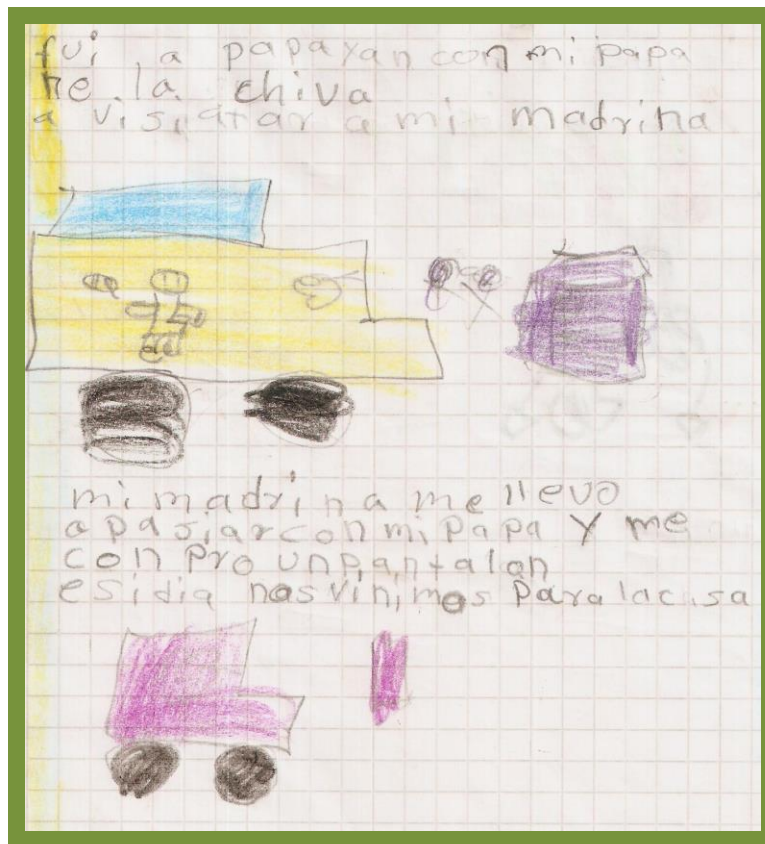 fui a papayan con mi papa
ne la chiva
a visiatar a mi madrina
mi madrina me llevo
a pasiar con mi papa y me
con pro un pantalan
esidia nos vinimos para la casa